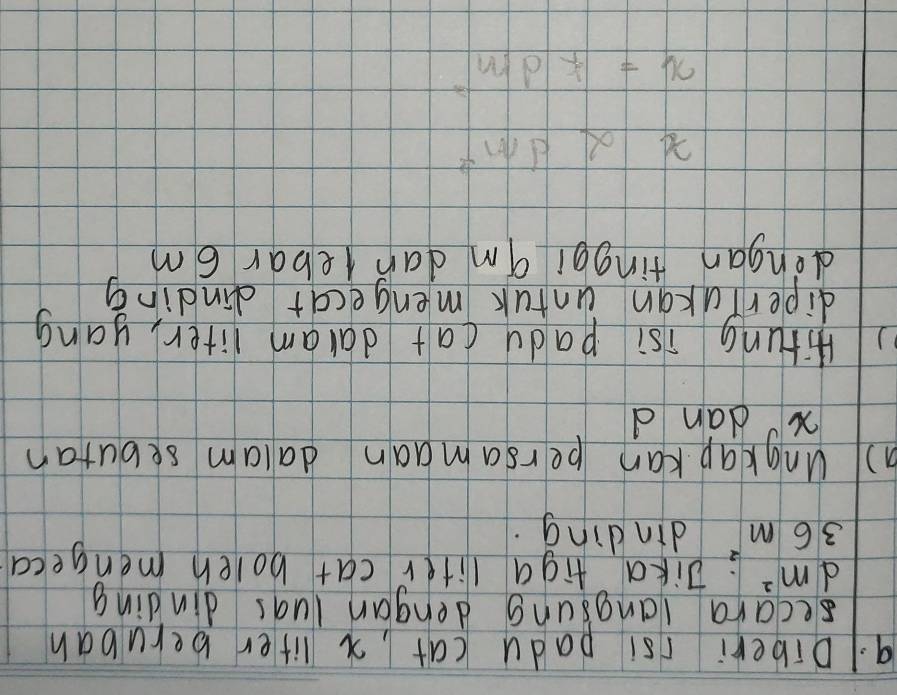 9. Diberi isi padu cat, x liter berubah
secara langsung dengan luas dinding
dm². Jika tiga liter cat boleh mengeca
36 m² dinding.
a) Ungkapkan persamaan dalam sebutan
x dan d
) Hitung isi padu cat dalam liter, yang
diperlukan untuk mengecat dinding
dengan tinggi 9m dan lebar 6m
x α dm²
x = k dm²